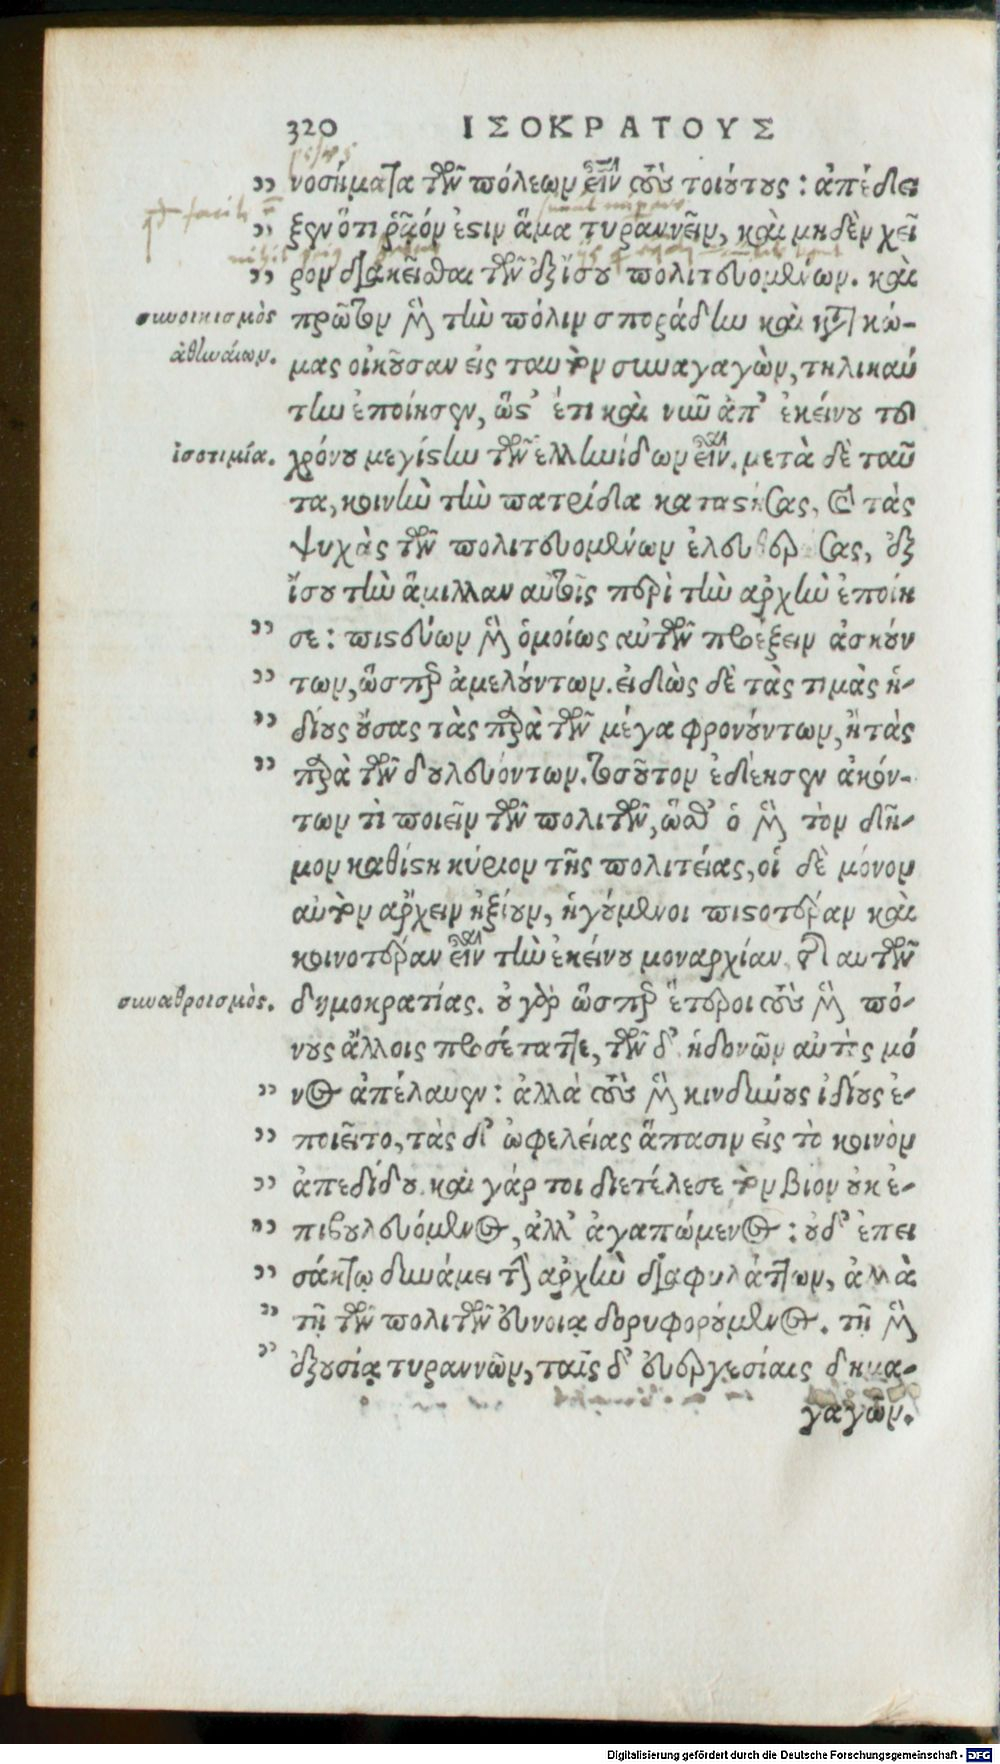 320 ΙΣΟΚΡΑΤΟΥΣ
„ νοσήματα τῶν πόλεων εἶναι τοὺς τοιούτους : ἀπέδει
„ ξεν ὅτι ῥᾷόν ἐστιν ἅμα τυραννεῖν, καὶ μηδὲν χεῖ
„ ρον διακεῖσθαι τῶν ἐξ ἴσου πολιτευομένων. καὶ
συνοικισμὸς πρῶτον μὲν τὴν πόλιν σποράδην καὶ κατὰ κώ-
ἀθηναίων. μας οἰκοῦσαν εἰς ταυτὸν συναγαγὼν, τηλικαύ
την ἐποίησεν, ὥστ' ἔτι καὶ νῦν ἀπ' ἐκείνου τοῦ
ἰσοτιμία. χρόνου μεγίστην τῶν ἑλληνίδων εἶναι. μετὰ δὲ ταῦ
τα, κοινὴν τὴν πατρίδα καταστήσας, καὶ τὰς
ψυχὰς τῶν πολιτευομένων ἐλευθερώσας, ἐξ
ἴσου τὴν ἅμιλλαν αὐτοῖς περὶ τὴν ἀρχὴν ἐποίη
„ σε : πιστεύων μὲν ὁμοίως αὐτῶν προέξειν ἀσκούν
„ των, ὥσπερ ἀμελούντων. εἰδὼς δὲ τὰς τιμὰς ἡ-
„ δίους οὔσας τὰς παρὰ τῶν μέγα φρονούντων, ἢ τὰς
„ παρὰ τῶν δουλευόντων. τοσοῦτον ἐδέησεν ἀκόν-
των τὶ ποιεῖν τῶν πολιτῶν, ὥσθ' ὁ μὲν τὸν δῆ-
μον καθίστη κύριον τῆς πολιτείας, οἱ δὲ μόνον
αὐτὸν ἄρχειν ἠξίουν, ἡγούμενοι πιστοτέραν καὶ
κοινοτέραν εἶναι τὴν ἐκείνου μοναρχίαν τῆς αὐτῶν
συναθροισμὸς. δημοκρατίας. οὐ γὰρ ὥσπερ ἕτεροι τοὺς μὲν πό-
νους ἄλλοις προσέταττε, τῶν δ' ἡδονῶν αὐτὸς μό
„ νος ἀπέλαυεν : ἀλλὰ τοὺς μὲν κινδύνους ἰδίους ἐ-
„ ποιεῖτο, τὰς δ' ὠφελείας ἅπασιν εἰς τὸ κοινὸν
„ ἀπεδίδου. καὶ γάρ τοι διετέλεσε τὸν βίον οὐκ ἐ-
„ πιβουλευόμενος, ἀλλ' ἀγαπώμενος : οὐδ' ἐπει
„ σάκτῳ δυνάμει τὴν ἀρχὴν διαφυλάττων, ἀλλὰ
„ τῇ τῶν πολιτῶν εὐνοίᾳ δορυφορούμενος. τῇ μὲν
„ ἐξουσίᾳ τυραννῶν, ταῖς δ' εὐεργεσίαις δημα-
γαγῶν.
Digitalisierung gefördert durch die Deutsche Forschungsgemeinschaft - DFG